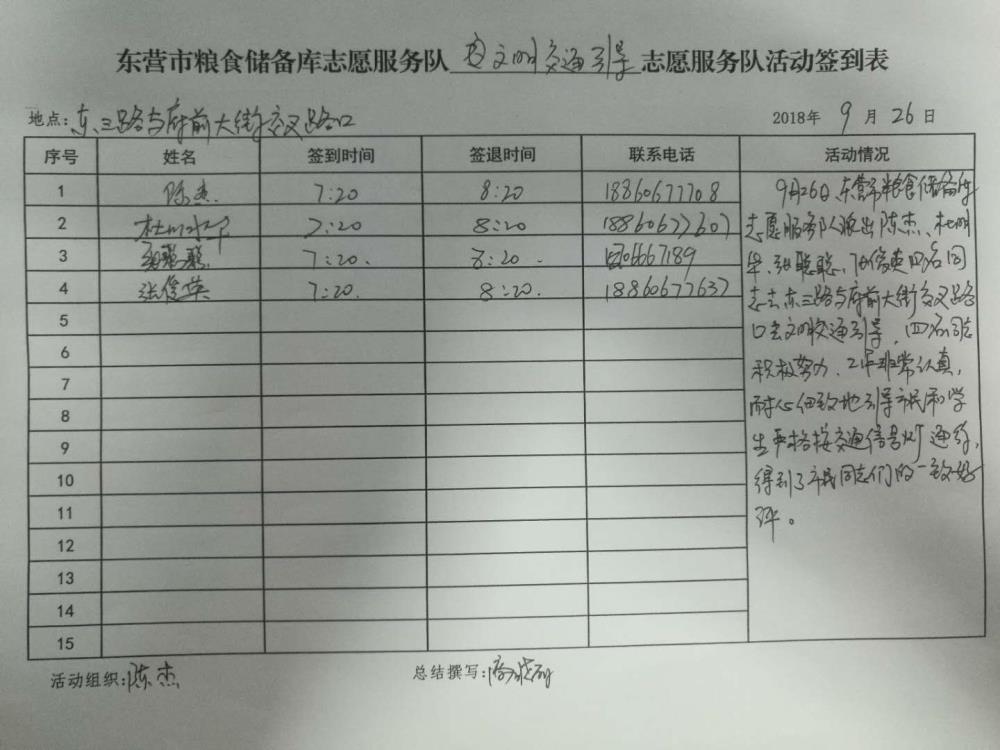 东营市粮食储备库志愿服务队 文明交通引导 志愿服务队活动签到表
地点: 东三路与府前大街交叉路口 2018年 9 月 26 日
序号 姓名 签到时间 签退时间 联系电话 活动情况
1 陈杰 7:20 8:20 18860677708
2 杜明华 7:20 8:20 18860677607
3 张聪聪 7:20. 8:20. 06667189
4 张俊英 7:20. 8:20. 18860677637
5
6
7
8
9
10
11
12
13
14
15
9月26日,东营市粮食储备库
志愿服务队派出陈杰、杜明
华、张聪聪、张俊英四名同
志去东三路与府前大街交叉路
口去文明交通引导,四名同志
积极努力、工作非常认真,
耐心细致地引导市民和学
生严格按交通信号灯通行,
得到了市民同志们的一致好
评。
活动组织: 陈杰 总结撰写: